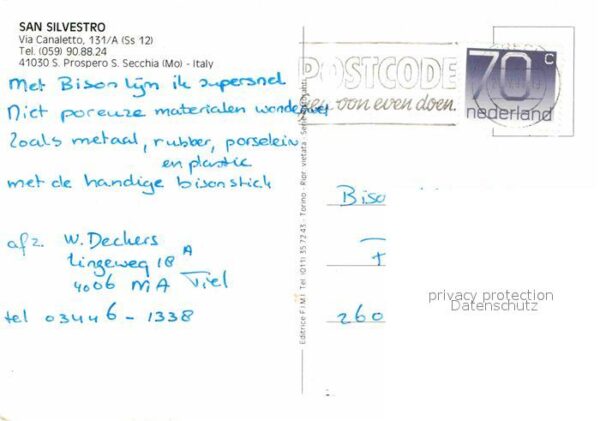 SAN SILVESTRO
Via Canaletto, 131/A (Ss 12)
Tel. (059) 90.88.24
41030 S. Prospero S. Secchia (Mo) - Italy
Met Bison lijm ik supersnel
Niet poreuze materialen wonderwel
Zoals metaal, rubber, porselein
en plastic
met de handige bisonstick
afz. W. Deckers
Lingeweg 18 A
4006 MA Tiel
tel 03446-1338
Editrice F.I.M.I. Tel (011) 35 72 43 - Torino - Ripr. vietata
POSTCODE
even doen.
70 c
nederland
Biso
T
+
260
privacy protection
Datenschutz